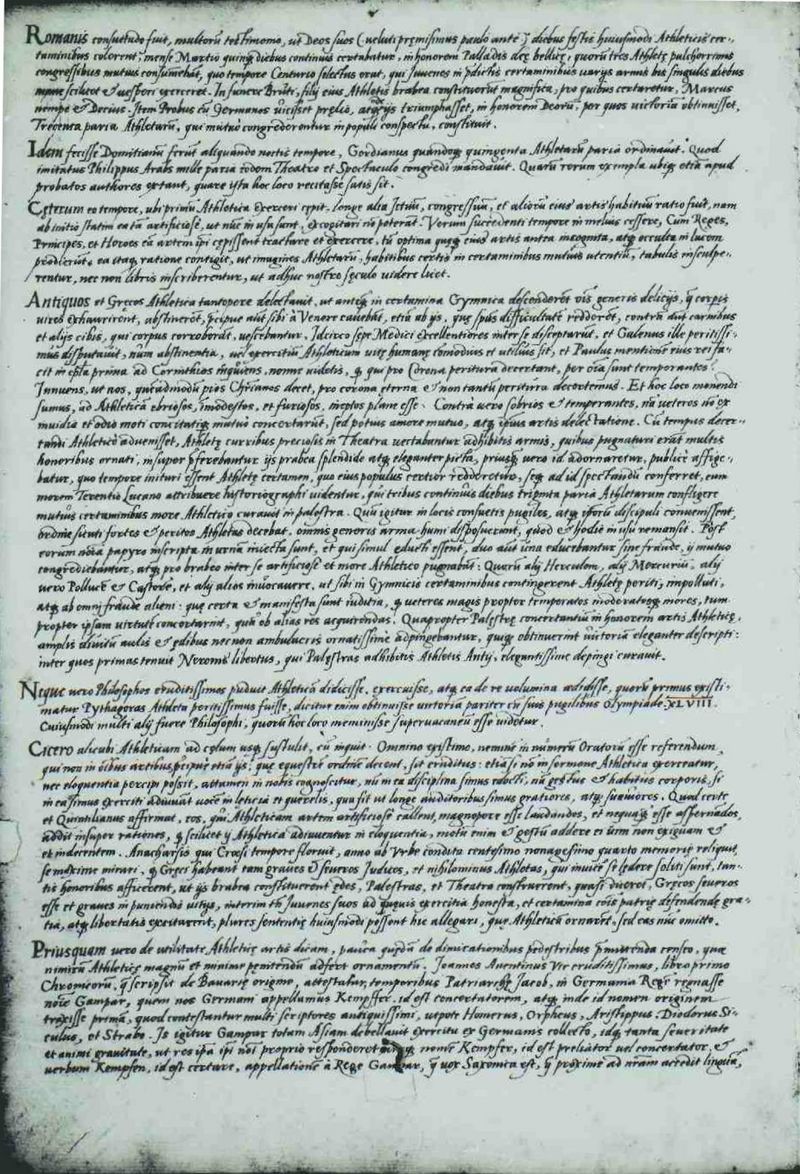 Romanis consuetudo fuit, multorū testimonio, ut Deos suos (veluti pręmisimus paulo ante) diebus festis huiusmodi Athleticis cer-
taminibus colerent, mense Martio quinq̄ diebus continuis certabatur, in honorem Palladis deę bellicę, quorū tres Athletę pulcherrimis
congressibus mutuis consumebāt, quo tempore Centurio selectus erat, qui iuvenes in p̄dictis certaminibus varijs armis bis singulis diebus
mane scilicet & vesperi exerceret. In funere Bruti, filij eius Athletis brabea constituerūt magnifica, pro quibus certaretur, Marcus
nempe & Decius. Item Probus cū Germanos vicisset prelio, atq̄ ijs triumphasset, in honorem Deorū, per quos victoriā obtinuisset,
Trecenta paria Athletarū, qui mutuo congrederentur in populi conspectu, constituit.
Idem fecisse Domitianū ferūt aliquando noctis tempore, Gordianus quandoq̄ quingenta Athletarū paria ordinavit. Quod
imitatus Philippus Arabs mille paria eodem Theatro et Spectaculo congredi mandavit. Quarū rerum exempla ubiq̄ etiā apud
probatos authores extant, quare ista hoc loco recitasse satis sit.
Cęterum eo tempore, ubi primū Athletica exerceri cępit, longe alia fertur, congressuū, et aliorū eius artis habituū ratio fuit, nam
ab initio statim ea tā artificiose, ut nūc in usu sunt, excogitari nō poterāt. Verum succedenti tempore in melius cessere, Cum Reges,
Principes, et Heroes eā artem ipi cępissent tractare et exercere, tū optima quęq̄ eius artis antea incognita, atq̄ occulta in lucem
prodierūt, ea itaq̄ ratione contigit, ut imagines Athletarū, habitibus certis in certaminibus mutuis utentiū, tabulis insculpe-
rentur, nec non libris inscriberentur, ut adhuc nostro sęculo videre licet.
Antiquos et Gręcos Athletica tantopere delectavit, ut anteq̄ in certamina Gymnica descenderēt oīs generis delicijs, q̄ corpis
vires exhaurirent, abstinerēt, p̄cipue aūt sibi à Venere cavebāt, etiā ab ijs, quę sp̄us difficultatē redderēt, contrà aūt carnibus
et alijs cibis, qui corpus corroborāt, vescebantur. Idcirco sępe Medici excellentiores inter se disceptarūt, et Galenus ille peritissi-
mus disputavit, num abstinentia, vel exercitiū Athleticum vitę humanę comodius et utilius sit, et Paulus mentionē eius rei fa-
cit in ep̄la prima ad Corinthios inquiens, nonne videtis, q̄ qui pro Corona peritura decertant, per oīa sunt temperantes?
Innuens, ut nos, quēadmodū pios Chr̄ianos decet, pro corona eterna & non tantū peritura decertemus. Et hoc loco monendi
sumus, ad Athleticā ebriosos, īmodestos, et furiosos, ineptos plane esse. Contrà vero sobrios & temperantes, nā veteres nō ex
invidia et odio moti concitatiq̄ mutuo concertarūt, sed potius amore mutuo, atq̄ ipius artis delectatione. Cū tempus decer-
tandi Athleticę advenisset, Athletę curribus preciosis in Theatra vectabantur adhibitis armis, quibus pugnaturi erāt multis
honoribus ornati, insuper p̄ferebantur ijs brabea splendide atq̄ eleganter picta, priusq̄ vero id adornaretur, publice affige-
batur, quo tempore inituri essent Athletę certamen, quo eius populus certior redderetur, seq̄ ad id spectandū conferret, eum
morem Terentio Lucano attribuere historiographi videntur, qui tribus continuis diebus triginta paria Athletarum confligere
mutuis certaminibus more Athletico curavit in palestra. Quū igitur in locis consuetis pugiles, atq̄ eorū discipuli convenissent,
ordine sicuti fortes & peritos Athletas decebat, omnis generis arma humi disposuerunt, quod & hodie in usu remansit. Post
eorum noīa papyro inscripta in urnā iniecta sunt, et qui simul educti essent, duo aūt una educebantur sine fraude, ij mutuo
congrediebantur, atq̄ pro brabeo inter se artificiose et more Athletico pugnabāt: Quorū alij Herculem, alij Mercuriū, alij
vero Pollucē & Castorē, et alij alios invocavere, ut sibi in Gymnicis certaminibus contingerent Athletę periti, impolluti,
atq̄ ab omni fraude alieni: quę certa & manifesta sunt iudicia, q̄ veteres magis propter temperatos moderatosq̄ mores, tum
propter ipsam virtutē concertarint, quā ob alias res acquirendas. Quapropter Palęstrę concertantiū in honorem artis Athleticę,
amplis divitū aulis & ędibus nec non ambulacris ornatissime adpingebantur, quiq̄ obtinuerint victoriā eleganter descripti:
inter quos primas tenuit Neronis libertus, qui Palęstras adhibitis Athletis Antij, elegantissime depingi curavit.
Neque vero Philosophos eruditissimos puduit Athleticā didicisse, exercuisse, atq̄ ea de re volumina ædidisse, quorū primus existi-
matur Pythagoras Athleta peritissimus fuisse, dicitur enim obtinuisse victoria pariter cū suis pugilibus Olympiade XLVIII.
Cuiusmodi multi alij fuere Philosophi, quorū hoc loco meminisse supervacaneū esse videtur.
Cicero alicubi Athleticam ad cęlum usq̄ sustulit, cū inquit. Omnino existimo, neminē in numerū Oratorū esse referendum,
qui non in oībus artibus, p̄cipue etiā ijs, quę equestrē ordinē decent, sit eruditus: etiā si nō in sermone Athletica exerceatur,
nec eloquentia percipi possit, attamen in nobis cognoscitur, nū in ea disciplina simus edocti, nā gestus & habitus corporis, si
in ea simus exerciti adiuvat vocē in leticia et querelis, qua fit ut longe auditoribus simus gratiores, atq̄ suaviores. Quod certe
et Quintilianus affirmat, eos, qui Athleticam artem artificiose callent, magnopere esse laudandos, et nequaq̄ esse aspernādos,
addit insuper rationes, q̄ scilicet ꝑ Athleticā adiuventur in eloquentia, motū enim & gestū addere ei vim non exiguam &
et indecentem. Anacharsis qui Croesi tempore floruit, anno ab Urbe condita centesimo nonagesimo quarto memorię reliquit,
se maxime mirari, q̄ Gręci habeant tam graves & severos Judices, et nihilominus Athletas, qui invicē se lędere soliti sunt, tan-
tis honoribus afficerent, ut ijs brabea constituerent ędes, Palestras, et Theatra construerent, quasi diceret, Gręcos severos
esse et graves in puniendis vitijs, interim th̄ iuvenes suos ad quęvis exercitia honesta, et certamina eoīs patrię defendendę gra-
tia, atq̄ libertatis excitaverit, plures sententię huiusmodi possent hic allegari, quę Athleticā ornarēt, sed eas nūc omitto.
Priusquam vero de utilitate Athleticę artis dicam, pauca quędā de dimicationibus pedestribus p̄mittenda censeo, quę
nimirū Athleticę magnū et minime penitendū adfert ornamentū. Joannes Aventinus Vir eruditissimus, libro primo
Chronicorū, q̄ scripsit de Bavarię origine, attestatur, temporibus Patriarchę Jacob, in Germania Regē regnasse
noīe Gampar, quem nos Germani appellamus Kempffer, id est concertatorem, atq̄ inde id nomen originem
traxisse primā, quod contestantur multi scriptores antiquissimi, utpote Homerus, Orpheus, Aristippus, Diodorus Si-
culus, et Strabo. Is igitur Gampar totam Asiam debellavit exercitu ex Germanis collecto, idq̄ tanta severitate
et animi gravitate, ut res ipa ipi noī proprio responderet nomē Kempfer, id est preliator vel concertator, &
verbum Kempfen, id est certare, appellationē à Rege Gampar, q̄ vox Saxonica est, q̄ proxime ad nr̄am accedit linguā,